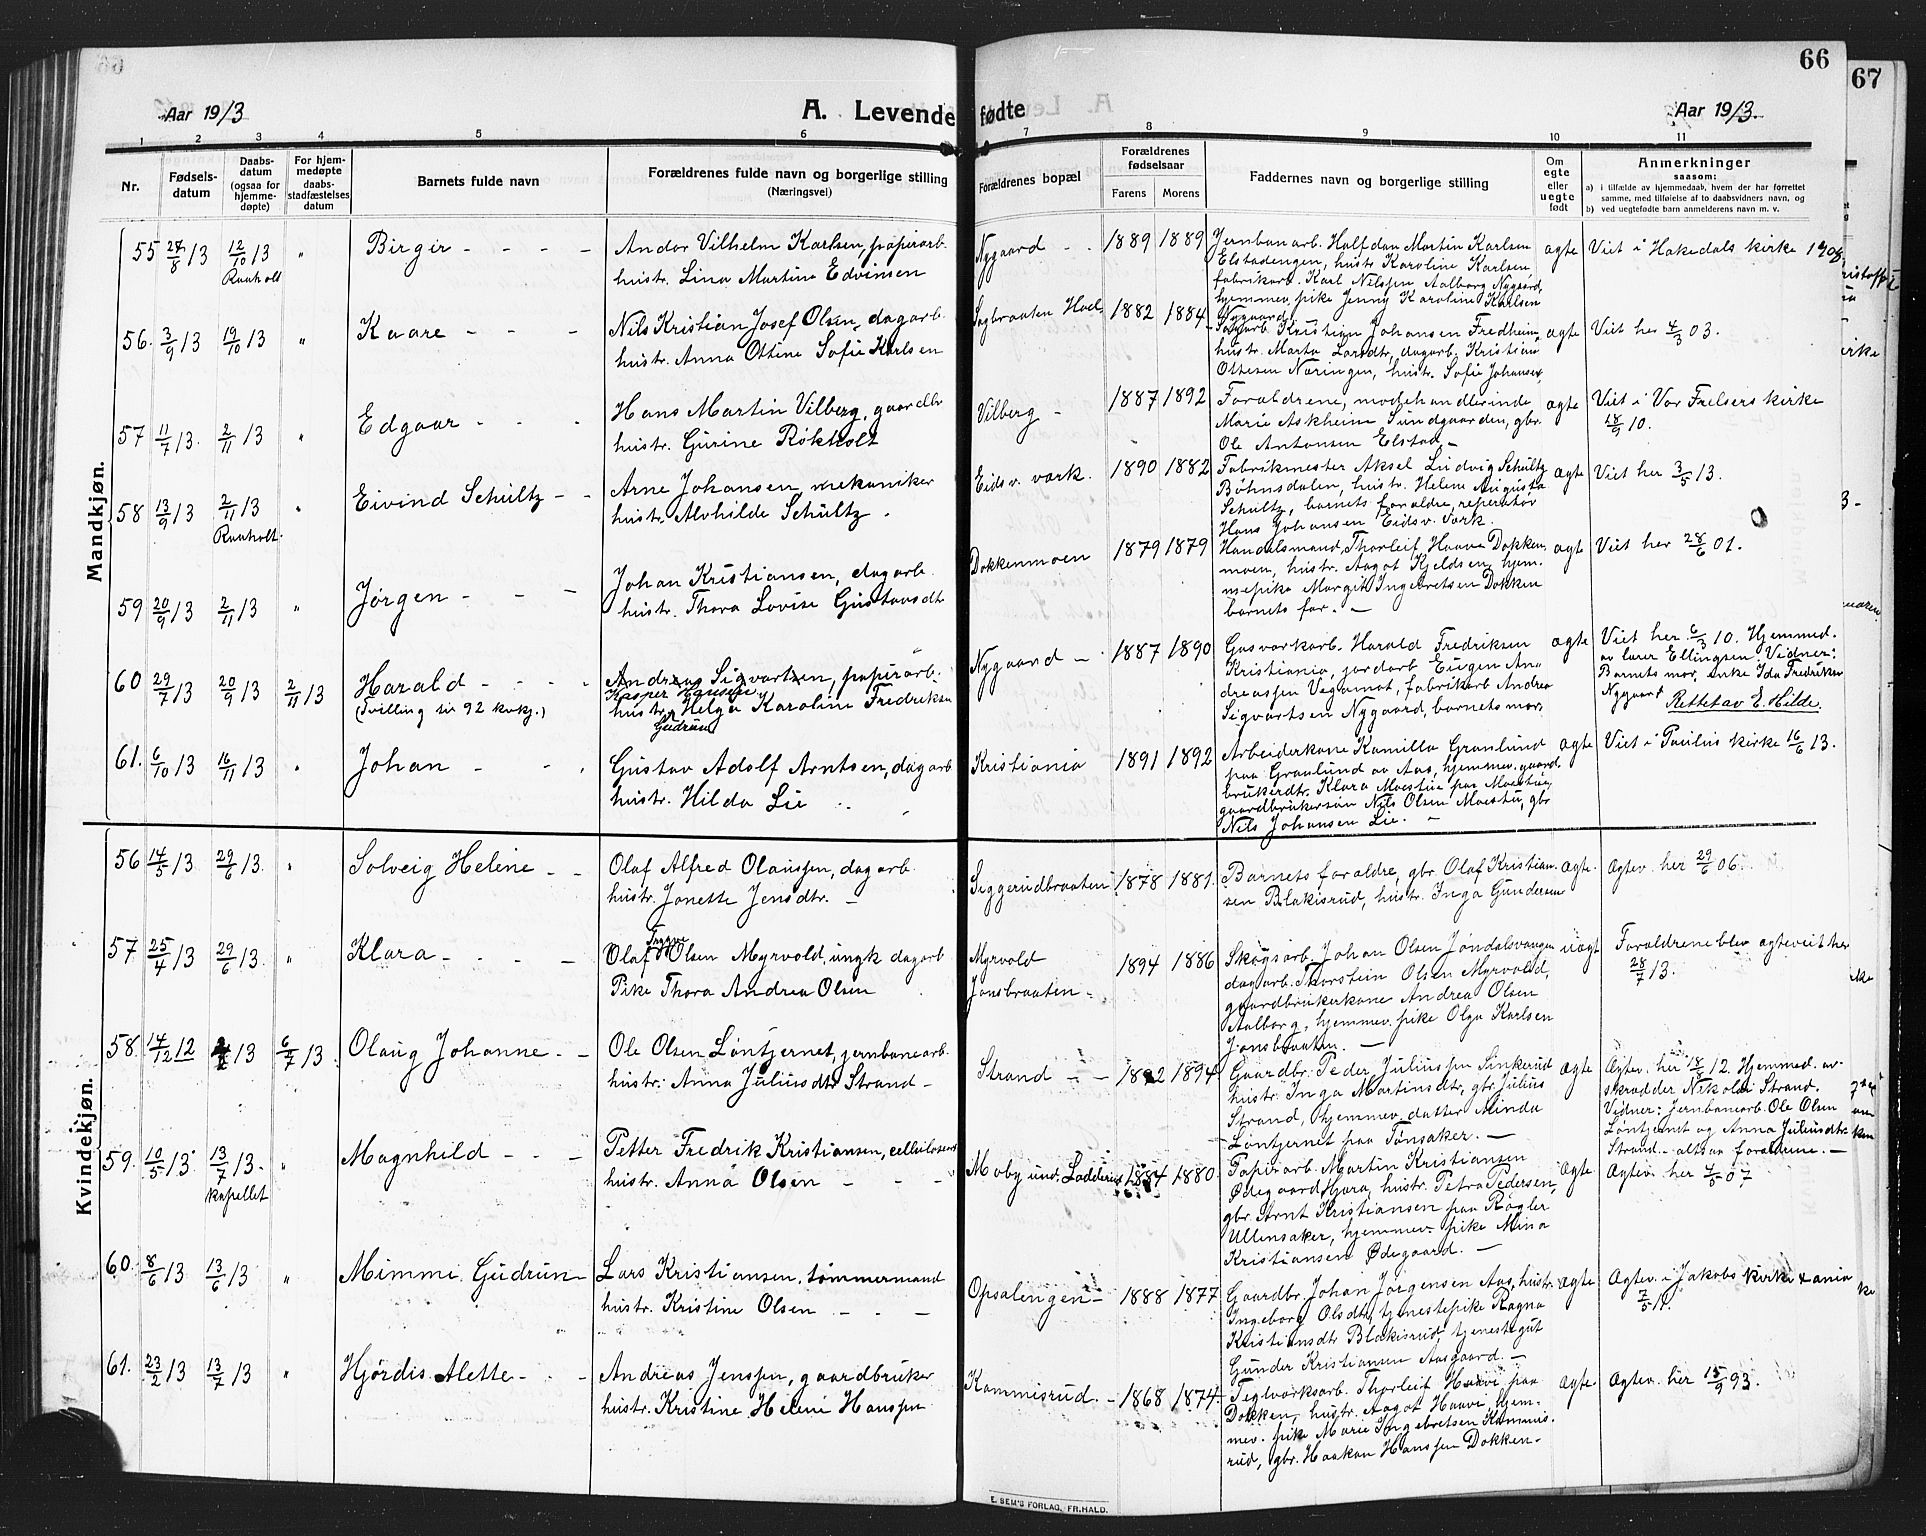 66
67
Aar 1913
A. Levende fødte
Aar 1913.
1 2 3 4 5 6 7 8 9 10 11
Nr.
Fødsels-
datum
Daabs-
datum
(ogsaa for
hjemme-
døpte)
For hjem-
medøpte
daabs-
stadfæstelses
datum
Barnets fulde navn
Forældrenes fulde navn og borgerlige stilling
(Næringsvei)
Forældrenes bopæl
Forældrenes
fødselsaar
Farens Morens
Faddernes navn og borgerlige stilling
Om
egte
eller
uegte
født
Anmerkninger
saasom:
a) i tilfælde av hjemmedaab, hvem der har forrettet
samme, med tilføielse af to daabsvidners navn, og
b) ved uegtefødt barn anmelderens navn m. v.
Mandkjøn.
55 27/8 13 12/10 13 " Birgir - - - -
Raaholt
Andor Vilhelm Karlsen, papirarb.
hustr. Lina Martine Edvinsen
Nygaard - - 1889 1889
Jernbanarb. Halfdan Martin Karlsen
Elstadengen, hustr. Karoline Karlsen,
fabrikarb. Karl Nilssen Aalborg Nygaard,
hjemmev. pike Jenny Karoline Karlsen
Nygaard
ægte Viet i Hakedals kirke 1908
56. 3/9 13 19/10 13 " Kaare - - -
Nils Kristian Josef Olsen, dagarb.
hustr. Anna Ottine Sofie Karlsen
Sagbraaten Hol. 1882 1884
Kristian Johansen Fredheim,
hustr. Marta Larsdtr, dagarb. Kristian
Ottesen Næringen, hustr. Sofie Johansen,
ægte Viet her 4/3 03.
57 11/7 13. 2/11 13 " Edgaar - - -
Hans Martin Vilberg, gaardbr
hustr. Gurine Røkholt
Vilberg - 1887 1892
Forældrene, modehandlerinde
Marie Askheim Sundgaarden, gbr.
Ole Antonsen Elstad -
ægte Viet i Vor Frelsers kirke
18/9 10.
58 13/9 13 2/11 13 " Eivind Schultz - -
Raaholt.
Arne Johansen, mekaniker
hustr. Alvhilde Schultz.
Eidsv. værk. 1890 1882
Fabrikmester Aksel Ludvig Schultz
Bøhnsdalen, hustr. Helene Augusta
Schultz, barnets forældre, reperatør
Hans Johansen Eidsv. værk.
ægte Viet her 3/5 13.
59 20/9 13 2/11 13 " Jørgen - - -
Johan Kristiansen, dagarb.
hustr. Thora Lovise Gustavsdtr
Dokkenmoen 1879 1879
Handelsmand Thorleif Haave Dokken-
moen, hustr. Aagot Kjeldsen, hjem-
mepike Margit Ingebretsen Dokken
barnets far. -
ægte Viet her 28/6 01.
60 29/7 13 20/9 13 2/11 13 Harald - - - -
(Tvilling se 92 kvkj.)
Andreas Sigvartsen, papirarb.
Kasper Hansen
hustr. Helga Karoline Fredriksen
Gudrun
Nygaard - 1887 1890
Gasverkarb. Harald Fredriksen
Kristiania, jordarb Eugen An-
dreassen Vegamot, fabrikarb Andrea
Sigvartsen Nygaard, barnets mor,
ægte Viet her 6/3 10. Hjemmed.
av lærer Ellingsen Vidner:
Barnets mor, enke Ida Fredriksen
Nygaard
Rettet av E. Hilde.
61. 6/10 13 16/11 13 " Johan - - -
Gustav Adolf Arntsen, dagarb
hustr. Hilda Lie
Kristiania 1891 1892
Arbeiderkone Kamilla Granlund
paa Granlund av Aas, hjemmev. gaard-
brukerdtr. Klara Moestue paa Moestue,
gaardbrukersøn Nils Olsen Moestu, gbr
Nils Johansen Lie. -
ægte Viet i Paulus kirke 16/6 13.
Kvindekjøn.
56 14/5 13 29/6 13. " Solveig Helene - -
Olaf Alfred Olaussen, dagarb.
hustr. Janette Jensdtr. -
Seggerudbraaten 1878 1881.
Barnets forældre, gbr. Olaf Kristian-
sen Blakisrud, hustr. Inga Gundersen
ægte. Ægtev. her 29/6 06.
57 25/4 13 29/6 13. " Klara - - - -
Trygve
Olaf Olsen Myrvold, ungk. dagarb
Pike Thora Andrea Olsen
Myrvold
Jønsbraaten - 1894 1886
Skogsarb. Johan Olsen Jøndalsvangen
dagarb. Thorstein Olsen Myrvold,
gaardbrukerkone Andrea Olsen
Aalborg, hjemmev. pike Olga Karlsen
Jønsbraaten. -
uægt Forældrene blev ægteviet her
28/7 13.
58. 14/12 12 13 6/7 13. Olaug Johanne - -
Ole Olsen Løntjernet, jernbanearb.
hustr: Anna Juliusdtr Strand -
Strand - - 1892 1894
Gaardbr. Peder Juliussen Sinkerud
hustr. Inga Martinsdtr, gbr. Julius
Strand, hjemmev. datter Minda
Løntjernet paa Tønsaker. -
ægte Ægtev. her 18/8 12. Hjemmed. av
skrædder Nikolai Strand.
Vidner: Jernbanearb. Ole Olsen
Løntjernet og Anna Juliusdtr
Strand - altsaa forældrene. -
59. 10/5 13 13/7 13. " Magnhild - - -
Kapellet
Petter Fredrik Kristiansen, cellulosearb
hustr. Anna Olsen - - -
Moby und. Ladderud 1884 1880
Papirarb. Martin Kristiansen
Ødegaard Hjera, hustr. Petra Pedersen,
gbr. Arnt Kristiansen paa Røgler
Ullensaker, hjemmev. pike Mina
Kristiansen Ødegaard. -
ægte Ægtev. her 4/5 07
60. 8/6 13 13/6 13 " Mimmi Gudrun -
Lars Kristiansen, tømmermand
hustr. Kristine Olsen - - -
Opsalengen - 1888 1877
Gaardbr. Johan Jørgensen Aas, hustr.
Ingeborg Olsdtr, tjenestepike Ragna
Kristiansdtr Blakisrud, tjenestegut
Gunder Kristiansen Aasgaard. -
ægte Ægtev. i Jakobs kirke Xania
7/5 11.
61. 23/2 13 13/7 13 " Hjørdis Alette - - -
Andreas Jenssen, gaardbruker
hustr. Kristine Helene Hanssen
Kammisrud. - 1868 1874.
Teglverksarb. Thorleif Haave paa
Dokken, hustr. Aagot Haave, hjem-
mev. pike Marie Ingebretsen Kammis-
rud, gbr. Haakon Hanssen Dokken -
ægte Ægtev. her 15/9 93.
E. SEM'S FORLAG, FR.HALD.